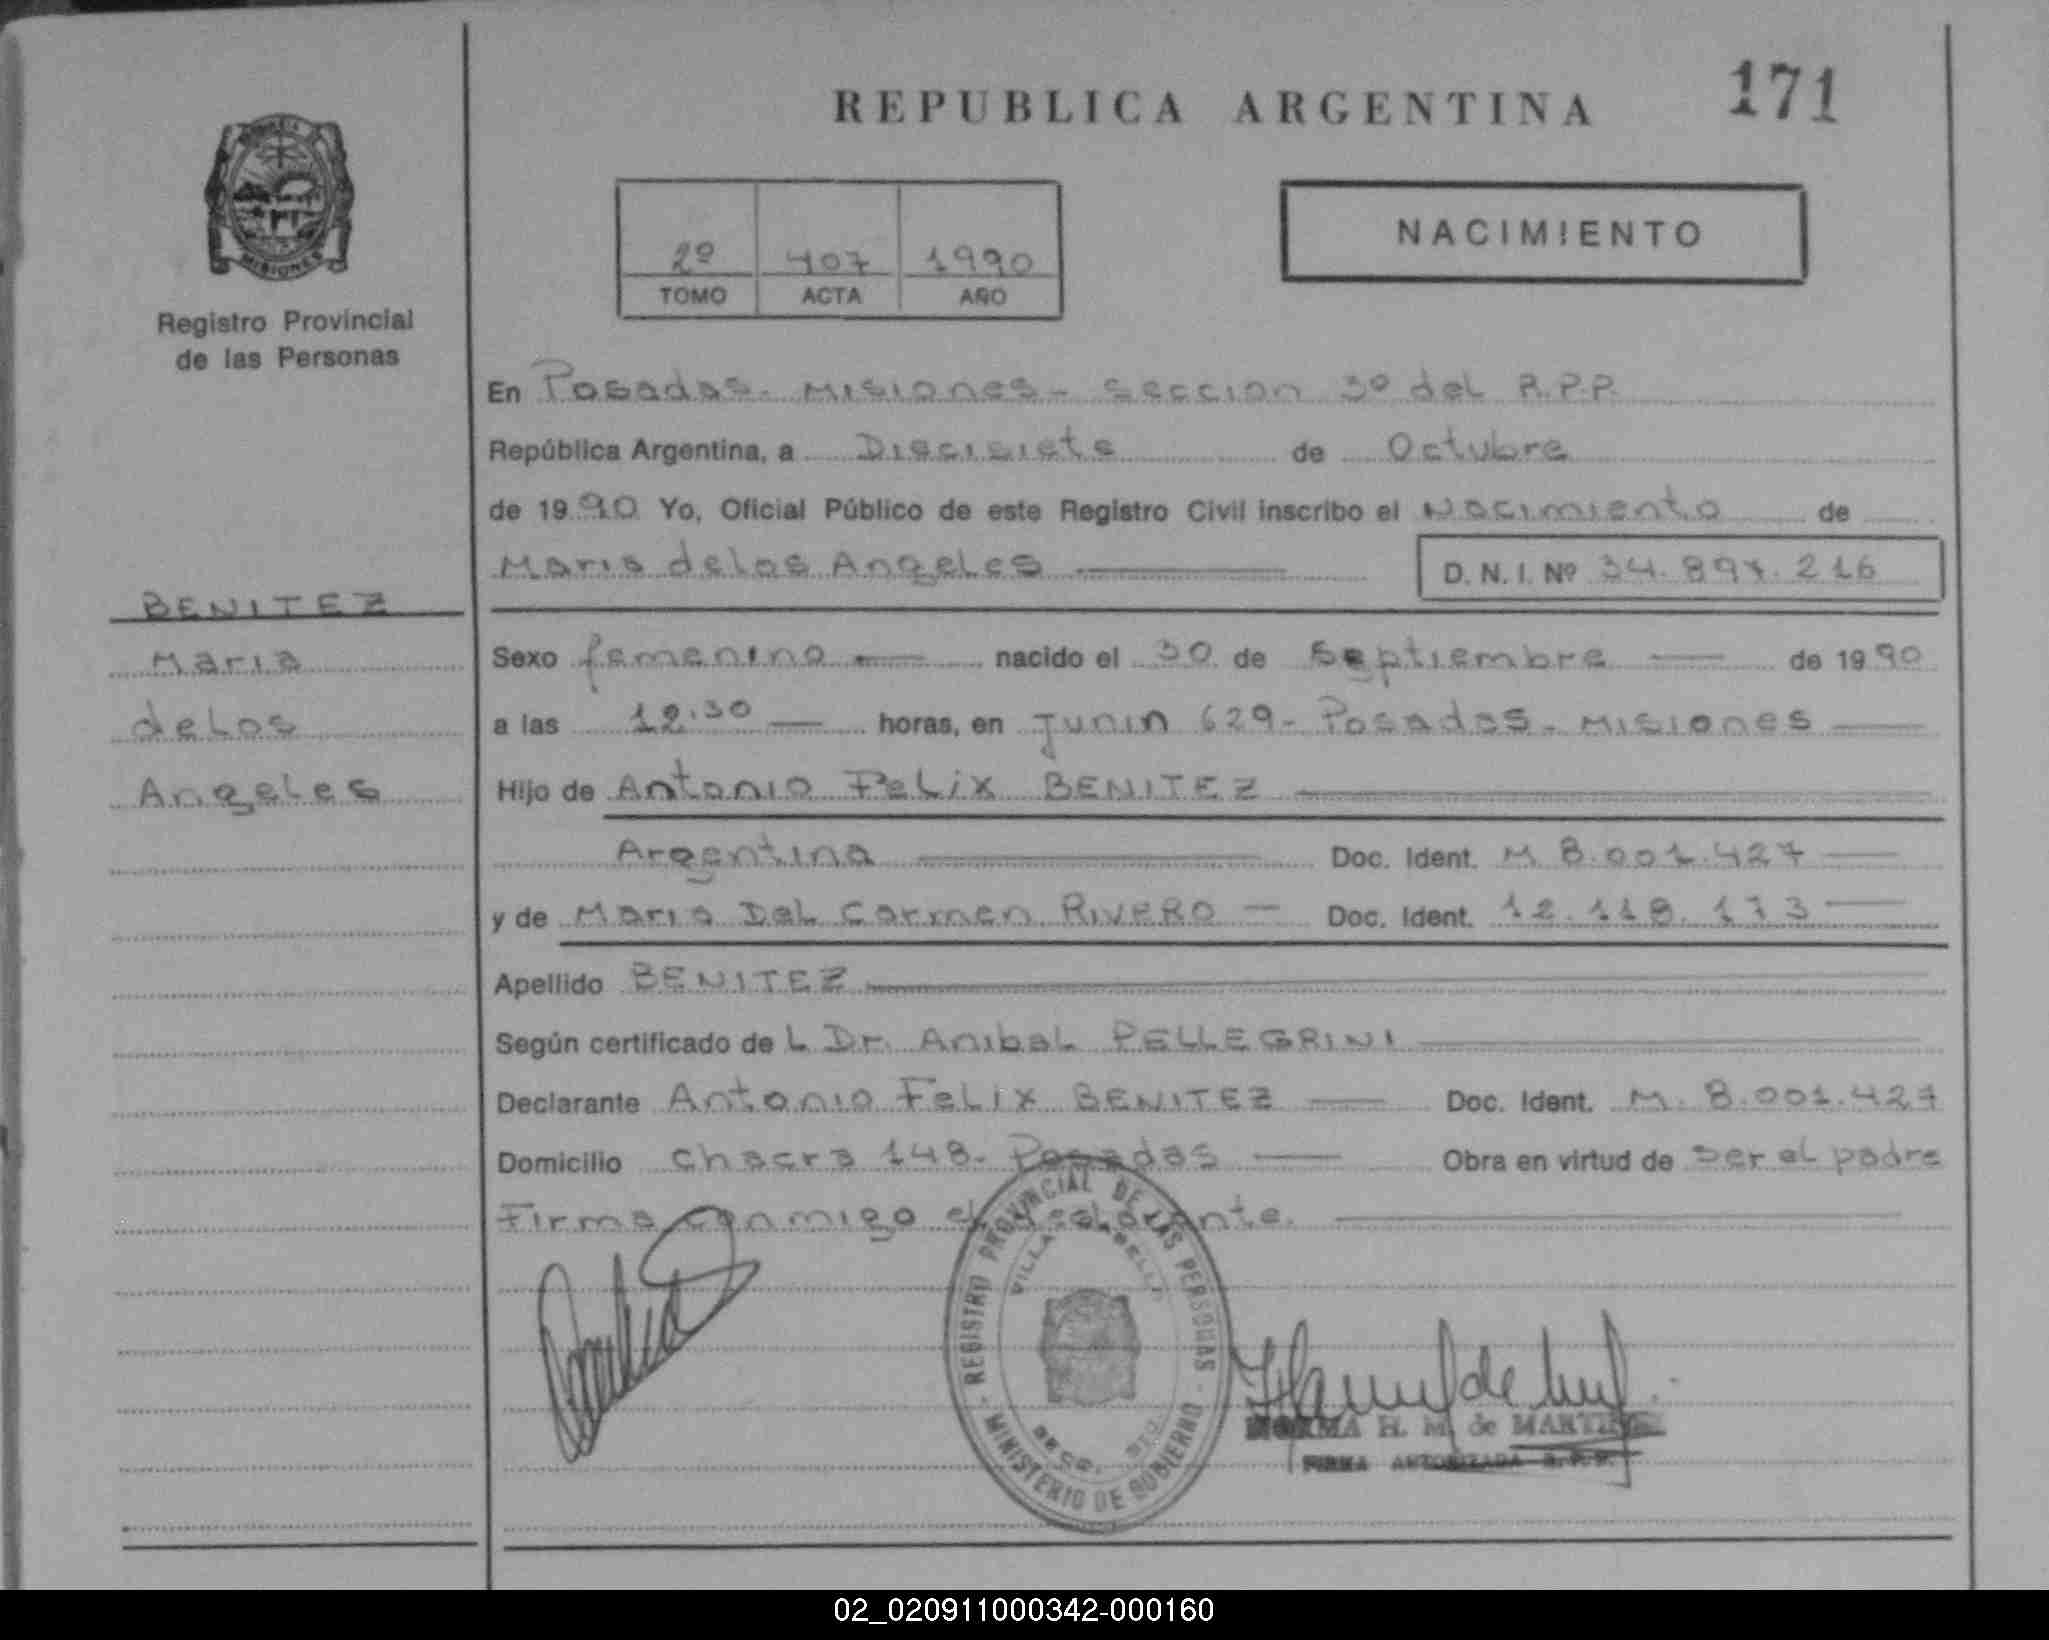 REPUBLICA ARGENTINA
171
MISIONES
Registro Provincial
de las Personas
2º 407 1990
TOMO ACTA AÑO
NACIMIENTO
En Posadas. Misiones - Seccion 3º del R.P.P.
República Argentina, a Diecisiete de Octubre
de 1990 Yo, Oficial Público de este Registro Civil inscribo el Nacimiento de
Maria delos Angeles
D. N. I. Nº
BENITEZ
Maria
delos
Angeles
Sexo femenino nacido el 30 de Septiembre de 1990
a las 12.30 horas, en Junin 629 - Posadas - Misiones
Hijo de Antonio Felix BENITEZ
Argentina Doc. Ident. M 8.001.427
y de Maria Del Carmen RIVERO - Doc. Ident.
Apellido BENITEZ
Según certificado de L Dr. Anibal PELLEGRINI
Declarante Antonio Felix BENITEZ Doc. Ident. M. 8.001.427
Domicilio Chacra 148 - Posadas Obra en virtud de ser el padre
Firma conmigo el declarante.
REGISTRO PROVINCIAL DE LAS PERSONAS
MINISTERIO DE GOBIERNO
NORMA H. M. de
FIRMA AUTORIZADA R.P.P.
02_020911000342-000160